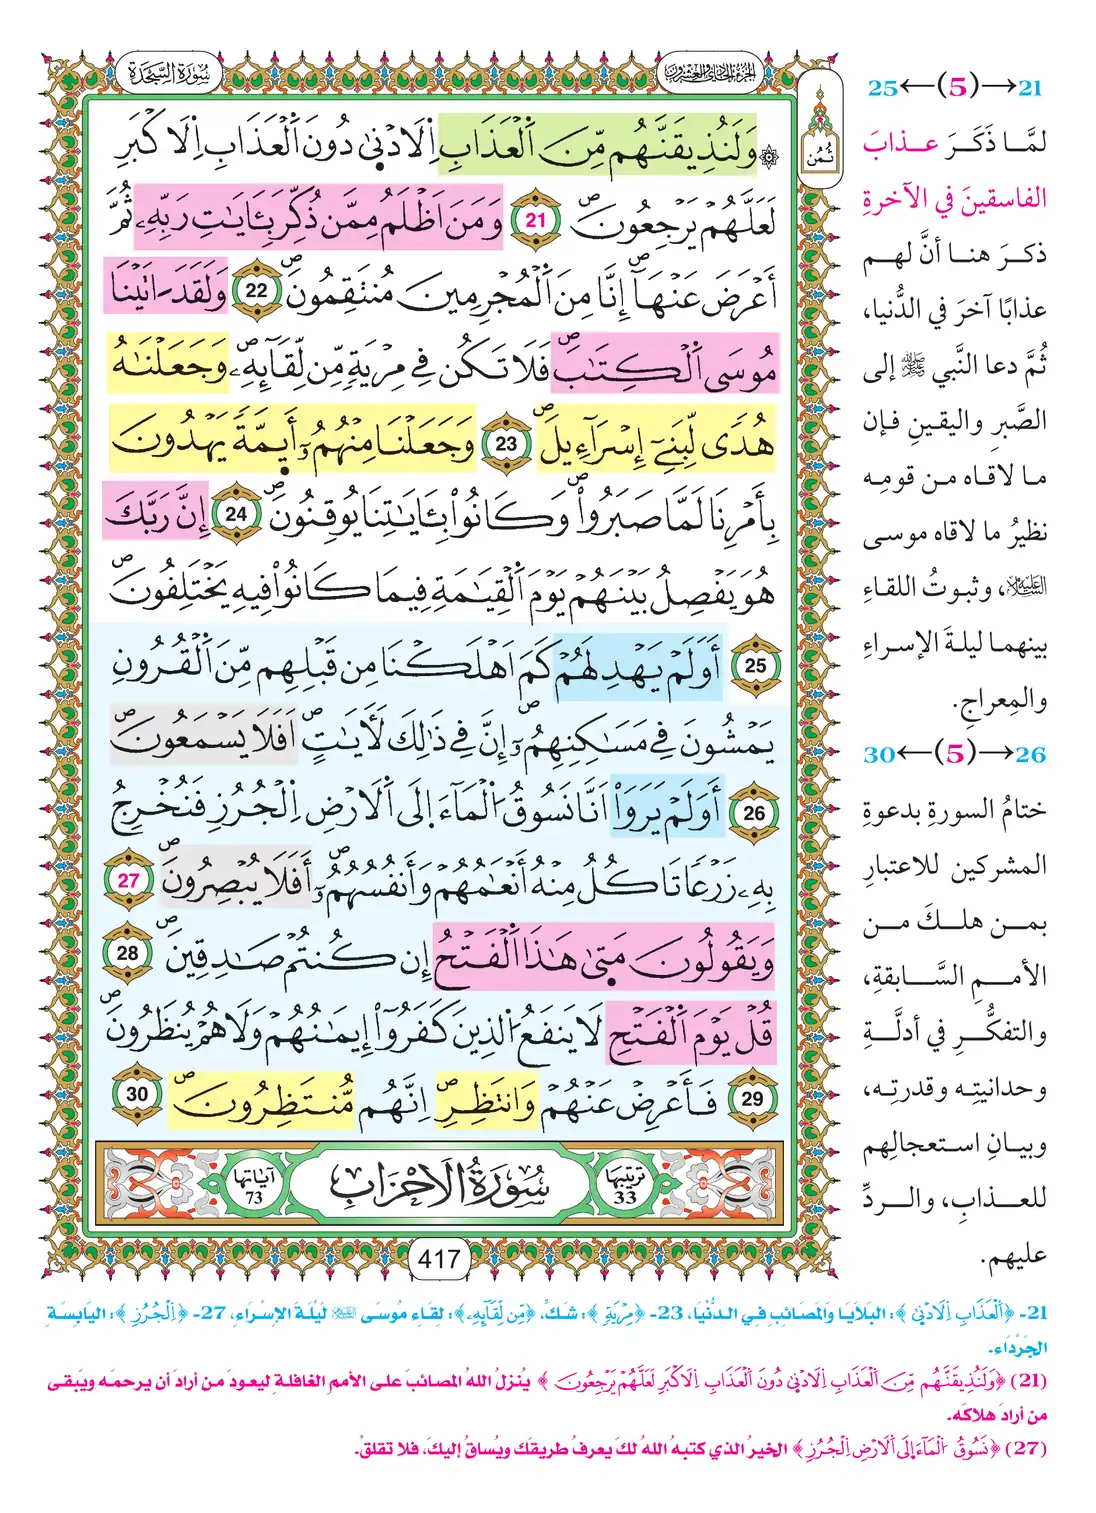 الجزء الحادي والعشرون
سُورَةُ السَّجْدَةِ
ثُمُن
۞ وَلَنُذِيقَنَّهُم مِّنَ اَ۬لْعَذَابِ اِ۬لَادْنَىٰ دُونَ اَ۬لْعَذَابِ اِ۬لَاكْبَرِ
لَعَلَّهُمْ يَرْجِعُونَۖ 21 وَمَنَ اَظْلَمُ مِمَّن ذُكِّرَ بِـَٔايَٰتِ رَبِّهِۦ ثُمَّ
أَعْرَضَ عَنْهَآۖ إِنَّا مِنَ اَ۬لْمُجْرِمِينَ مُنتَقِمُونَۖ 22 وَلَقَدَ اٰتَيْنَا
مُوسَى اَ۬لْكِتَٰبَۖ فَلَا تَكُن فِي مِرْيَةٍ مِّن لِّقَآئِهِۦۖ وَجَعَلْنَٰهُ
هُدىٗ لِّبَنِےٓ إِسْرَآءِيلَۖ 23 وَجَعَلْنَا مِنْهُمُۥٓ أَيِمَّةٗ يَهْدُونَ
بِأَمْرِنَا لَمَّا صَبَرُواْۖ وَكَانُواْ بِـَٔايَٰتِنَا يُوقِنُونَۖ 24 إِنَّ رَبَّكَ
هُوَ يَفْصِلُ بَيْنَهُمْ يَوْمَ اَ۬لْقِيَٰمَةِ فِيمَا كَانُواْ فِيهِ يَخْتَلِفُونَۖ
25 أَوَلَمْ يَهْدِ لَهُمْ كَمَ اَهْلَكْنَا مِن قَبْلِهِم مِّنَ اَ۬لْقُرُونِ
يَمْشُونَ فِي مَسَٰكِنِهِمُۥٓۖ إِنَّ فِي ذَٰلِكَ لَأٓيَٰتٍۖ اَفَلَا يَسْمَعُونَۖ
26 أَوَلَمْ يَرَوَاْ اَنَّا نَسُوقُ اُ۬لْمَآءَ إِلَى اَ۬لَارْضِ اِ۬لْجُرُزِ فَنُخْرِجُ
بِهِۦ زَرْعاٗ تَاكُلُ مِنْهُ أَنْعَٰمُهُمْ وَأَنفُسُهُمُۥٓۖ أَفَلَا يُبْصِرُونَۖ 27
وَيَقُولُونَ مَتَىٰ هَٰذَا اَ۬لْفَتْحُ إِن كُنتُمْ صَٰدِقِينَۖ 28
قُلْ يَوْمَ اَ۬لْفَتْحِ لَا يَنفَعُ اُ۬لذِينَ كَفَرُوٓاْ إِيمَٰنُهُمْ وَلَا هُمْ يُنظَرُونَۖ
29 فَأَعْرِضْ عَنْهُمْ وَانتَظِرِۖ اِنَّهُم مُّنتَظِرُونَۖ 30
ترتيبها 33
سُورَةُ الَاحْزَابِ
آياتها 73
417
21→(5)←25
لمَّا ذَكَرَ عذابَ
الفاسقينَ في الآخرةِ
ذكرَ هنا أنَّ لهم
عذابًا آخرَ في الدُّنيا،
ثُمَّ دعا النَّبي ﷺ إلى
الصَّبرِ واليقينِ فإن
ما لاقاه من قومِه
نظيرُ ما لاقاه موسى
عليه السلام، وثبوتُ اللقاءِ
بينهما ليلةَ الإسراءِ
والمِعراجِ.
26→(5)←30
ختامُ السورةِ بدعوةِ
المشركين للاعتبارِ
بمن هلكَ من
الأممِ السَّابقةِ،
والتفكُّرِ في أدلَّةِ
وحدانيتِه وقدرتِه،
وبيانِ استعجالِهم
للعذابِ، والردِّ
عليهم.
21- ﴿اَ۬لْعَذَابِ اِ۬لَادْنَىٰ﴾: البَلَايَا وَالمَصَائبِ فِي الدُّنْيَا، 23- ﴿مِرْيَةٍ﴾: شَكٍّ، ﴿مِّن لِّقَآئِهِۦ﴾: لِقَاءِ مُوسَى عليه السلام لَيْلَةَ الإِسْرَاءِ، 27- ﴿اِ۬لْجُرُزِ﴾: اليَابِسَةِ
الجَرْدَاءِ.
(21) ﴿وَلَنُذِيقَنَّهُم مِّنَ اَ۬لْعَذَابِ اِ۬لَادْنَىٰ دُونَ اَ۬لْعَذَابِ اِ۬لَاكْبَرِ لَعَلَّهُمْ يَرْجِعُونَ﴾ يُنزلُ اللهُ المصائبَ على الأممِ الغافلةِ ليعودَ من أرادَ أن يرحمَه ويَبقى
من أرادَ هلاكَه.
(27) ﴿نَسُوقُ اُ۬لْمَآءَ إِلَى اَ۬لَارْضِ اِ۬لْجُرُزِ﴾ الخيرُ الذي كتبهُ اللهُ لكَ يعرفُ طريقَك ويُساقُ إليكَ، فلا تقلقْ.